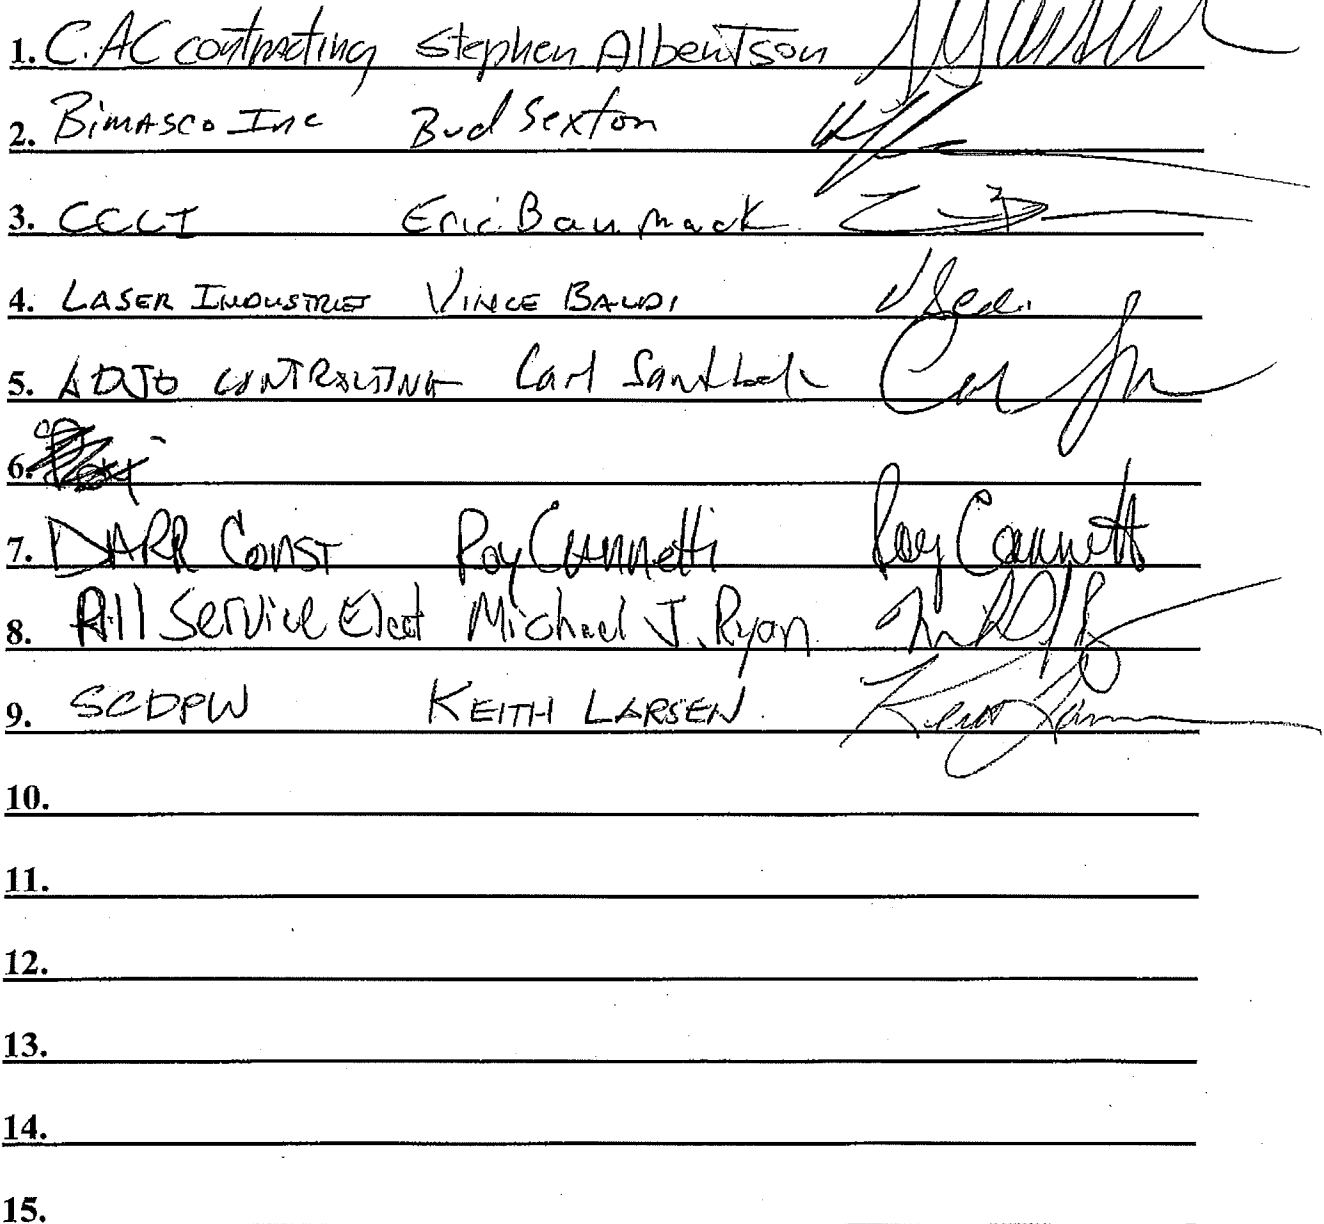 1. C.AC contracting Stephen Albertson
2. Bimasco Inc Bud Sexton
3. CCCI Eric Baumack
4. LASER INDUSTRIES VINCE BALDI
5. ADJO CONTRACTING Carl
6.
7. DARR CONST Roy Cannetti Roy Cannetti
8. All Service Elect Michael J. Ryan
9. SCDPW KEITH LARSEN
10.
11.
12.
13.
14.
15.